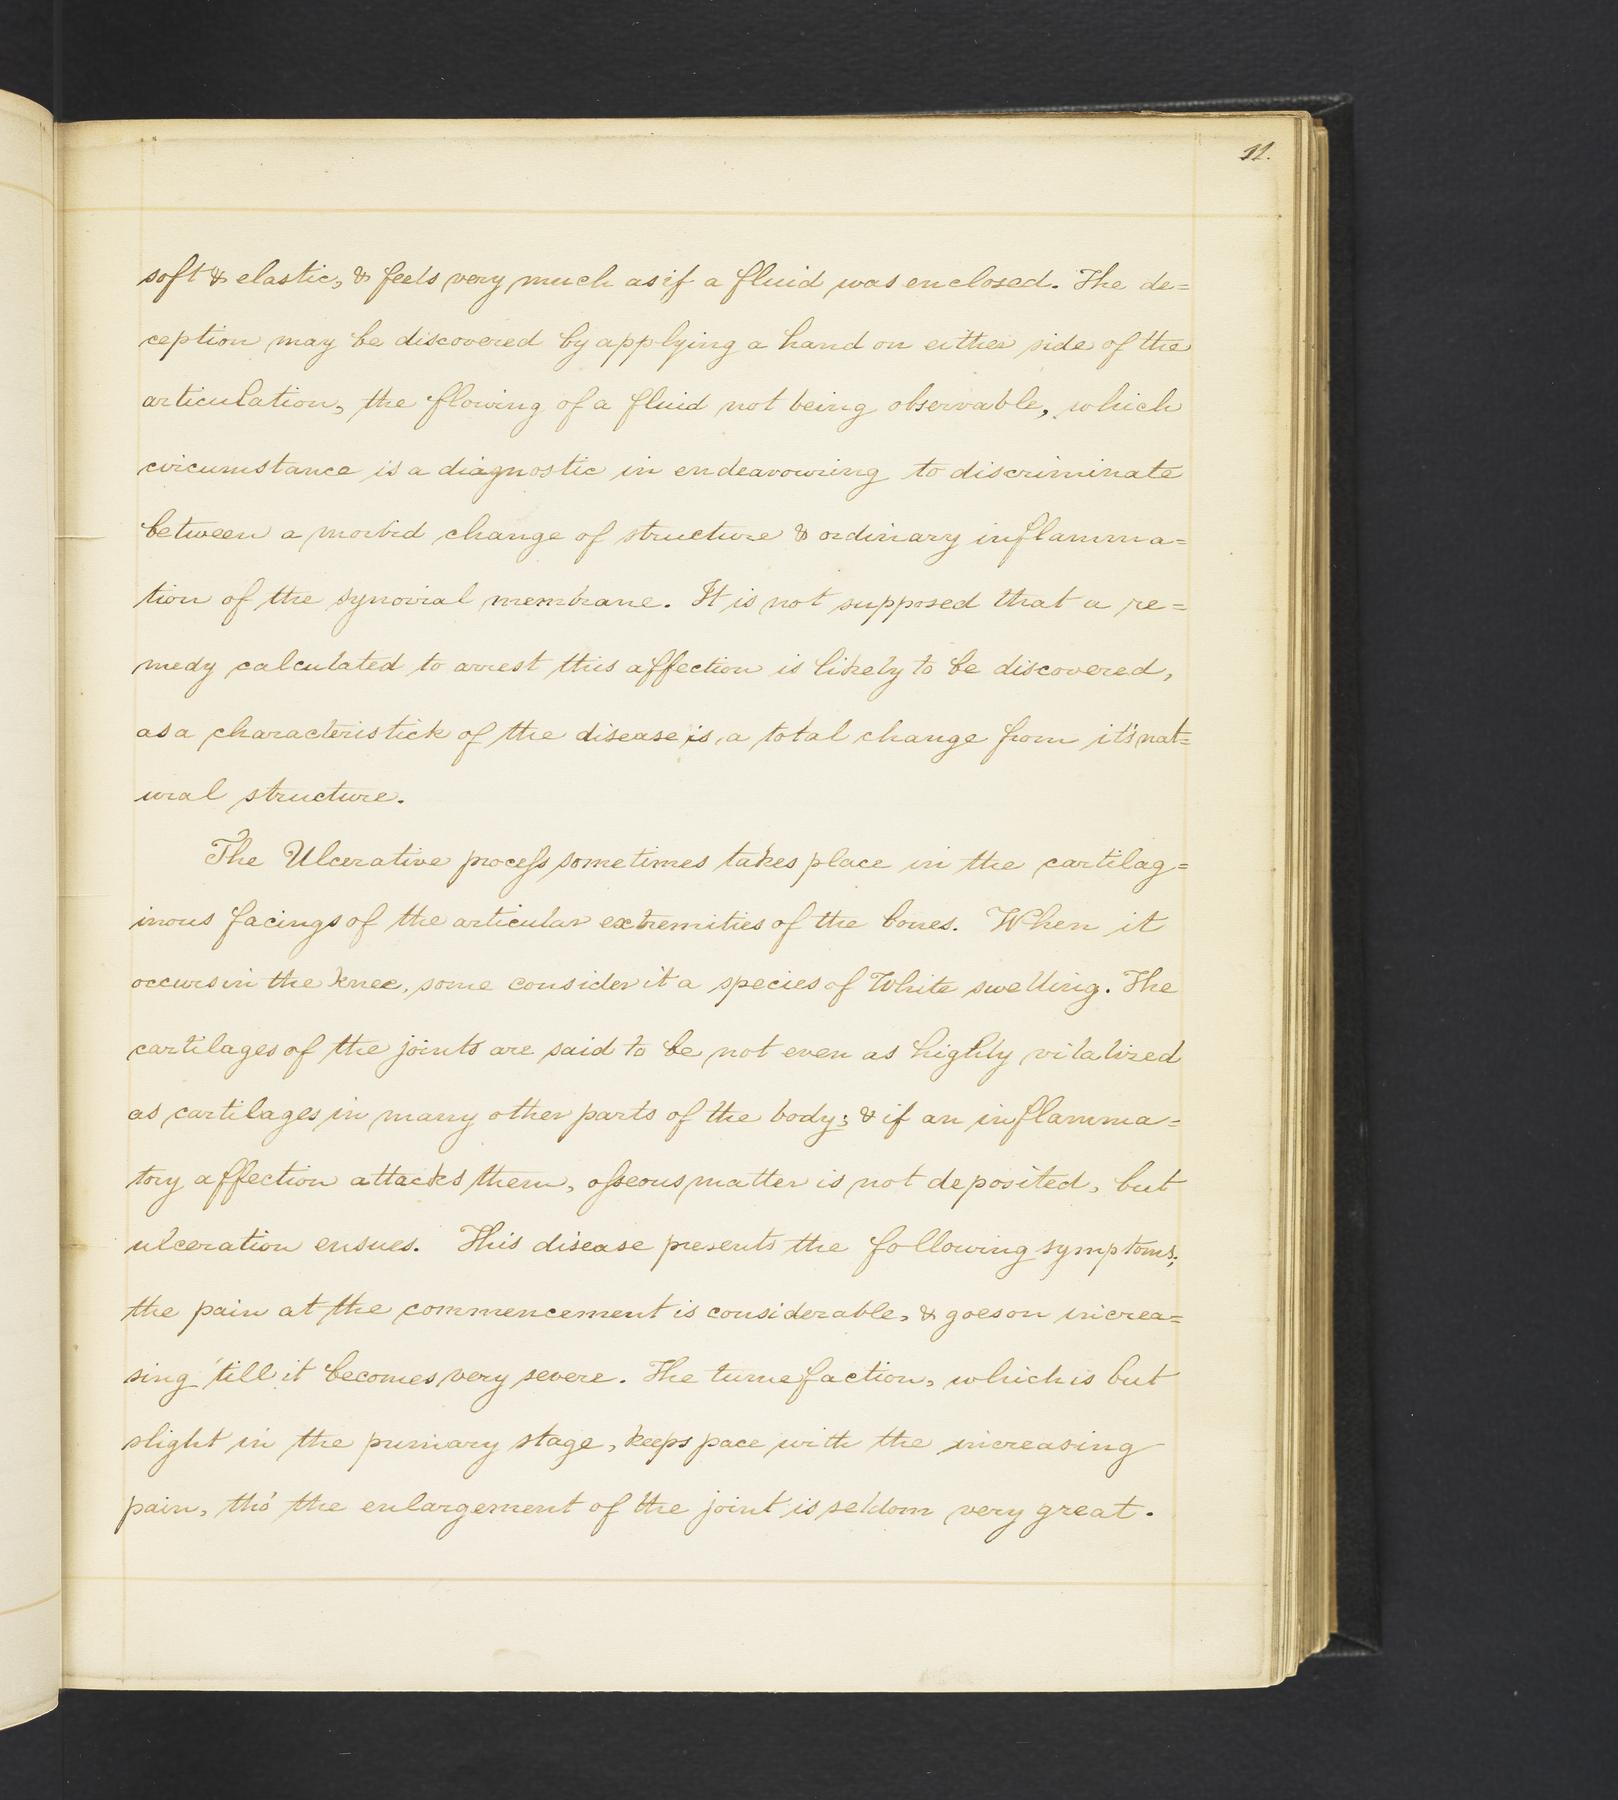 11.
soft & elastic, & feels very much as if a fluid was enclosed. The de=
ception may be discovered by applying a hand on either side of the
articulation, the flowing of a fluid not being observable, which
circumstance is a diagnostic in endeavouring to discriminate
between a morbid change of structure & ordinary inflamma=
tion of the synovial membrane. It is not supposed that a re=
medy calculated to arrest this affection is likely to be discovered,
as a characteristick of the disease is a total change from it's nat=
ural structure.
The Ulcerative process sometimes takes place in the cartilag=
inous facings of the articular extremities of the bones. When it
occurs in the knee, some consider it a species of White swelling. The
cartilages of the joints are said to be not even as highly vitalized
as cartilages in many other parts of the body; & if an inflamma=
tory affection attacks them, osseous matter is not deposited, but
ulceration ensues. This disease presents the following symptoms;
the pain at the commencement is considerable, & goes on increa=
sing 'till it becomes very severe. The tumefaction, which is but
slight in the primary stage, keeps pace with the increasing
pain, tho' the enlargement of the joint is seldom very great.